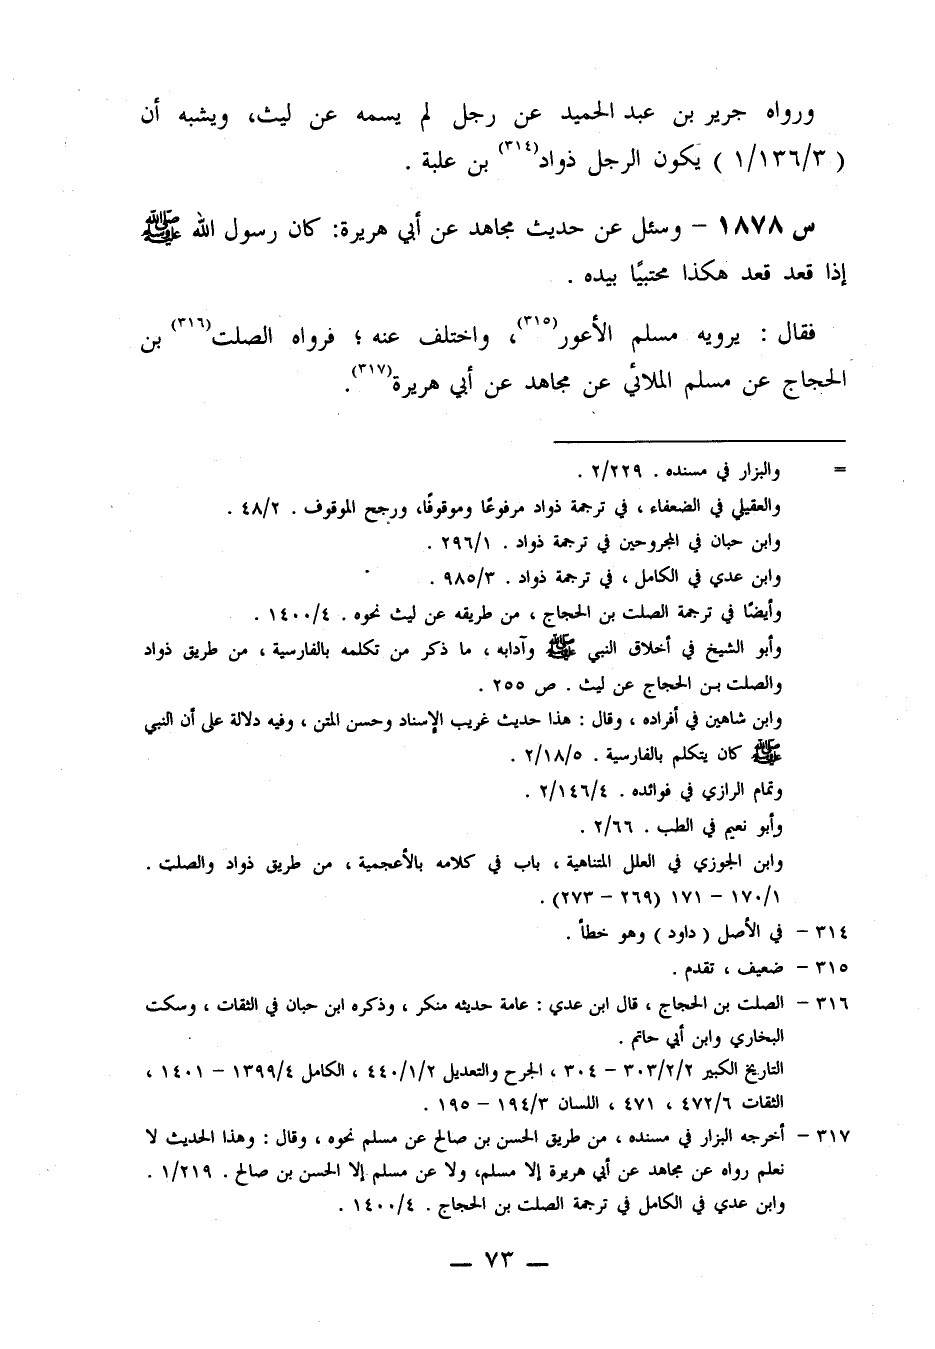 ورواه جرير بن عبد الحميد عن رجل لم يسمه عن ليث، ويشبه أن
( ١/١٣٦/٣ ) يكون الرجل ذواد(٣١٤) بن علبة .
س ١٨٧٨ – وسئل عن حديث مجاهد عن أبي هريرة: كان رسول الله ﷺ
إذا قعد قعد هكذا محتبيًا بيده .
فقال : يرويه مسلم الأعور(٣١٥)، واختلف عنه ؛ فرواه الصلت(٣١٦) بن
الحجاج عن مسلم الملائي عن مجاهد عن أبي هريرة(٣١٧).
= والبزار في مسنده . ٢/٢٢٩ .
والعقيلي في الضعفاء ، في ترجمة ذواد مرفوعًا وموقوفًا، ورجح الموقوف . ٤٨/٢ .
وابن حبان في المجروحين في ترجمة ذواد . ٢٩٦/١ .
وابن عدي في الكامل ، في ترجمة ذواد . ٩٨٥/٣ .
وأيضًا في ترجمة الصلت بن الحجاج ، من طريقه عن ليث نحوه . ١٤٠٠/٤ .
وأبو الشيخ في أخلاق النبي ﷺ وآدابه ، ما ذكر من تكلمه بالفارسية ، من طريق ذواد
والصلت بن الحجاج عن ليث . ص ٢٥٥ .
وابن شاهين في أفراده ، وقال : هذا حديث غريب الإسناد وحسن المتن ، وفيه دلالة على أن النبي
ﷺ كان يتكلم بالفارسية . ٢/١٨/٥ .
وتمام الرازي في فوائده . ٢/١٤٦/٤ .
وأبو نعيم في الطب . ٢/٦٦ .
وابن الجوزي في العلل المتناهية ، باب في كلامه بالأعجمية ، من طريق ذواد والصلت .
١٧٠/١ – ١٧١ (٢٦٩ – ٢٧٣) .
٣١٤ – في الأصل ( داود ) وهو خطأ .
٣١٥ – ضعيف ، تقدم .
٣١٦ – الصلت بن الحجاج ، قال ابن عدي : عامة حديثه منكر ، وذكره ابن حبان في الثقات ، وسكت
البخاري وابن أبي حاتم .
التاريخ الكبير ٣٠٣/٢/٢ – ٣٠٤ ، الجرح والتعديل ٤٤٠/١/٢ ، الكامل ١٣٩٩/٤ – ١٤٠١ ،
الثقات ٤٧٢/٦ ، ٤٧١ ، اللسان ١٩٤/٣ – ١٩٥ .
٣١٧ – أخرجه البزار في مسنده ، من طريق الحسن بن صالح عن مسلم نحوه ، وقال : وهذا الحديث لا
نعلم رواه عن مجاهد عن أبي هريرة إلا مسلم، ولا عن مسلم إلا الحسن بن صالح . ١/٢١٩ .
وابن عدي في الكامل في ترجمة الصلت بن الحجاج . ١٤٠٠/٤ .
— ٧٣ —